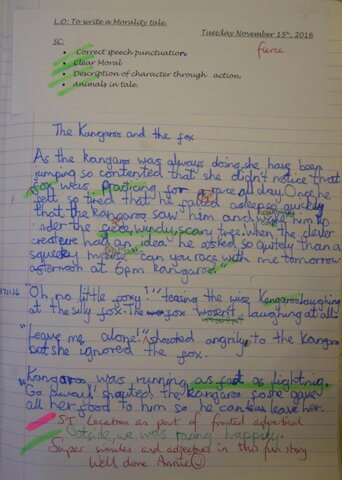 L.O: To write a Morality tale.
Tuesday November 15th, 2016
SC:
fierce
Correct speech punctuation.
Clear Moral
Description of character through action.
Animals in tale.
The Kangaroo and the fox
As the kangaroo was always doing, she have been
jumping so contented that she didn't notice that
fox was practicing for race all day. Once he
felt so tired that he falled asleep so quickly
that the kangaroo saw him and him
under the windy, scary tree. when the clever
creature had an idea he asked so quitely than a
squeeky mouse can you race with me tomorrow
afternoon at 6pm kangaroo."
"Oh no little foxy!" teasing the wise Kangaroo laughing
at the silly fox. The fox wasent laughing at all.
wasn't
"Leave me alone!" shouted angrily to the Kangaroo
but she ignored the fox.
"Kangaroo was running as fast as lightning.
Go away" shouted the kangaroo so she gave
all her food to him so he can leave her.
ST Location as part of fronted adverbial
Outside, we was racing happily.
Super similes and adjectives in this fun story
Well done Annie